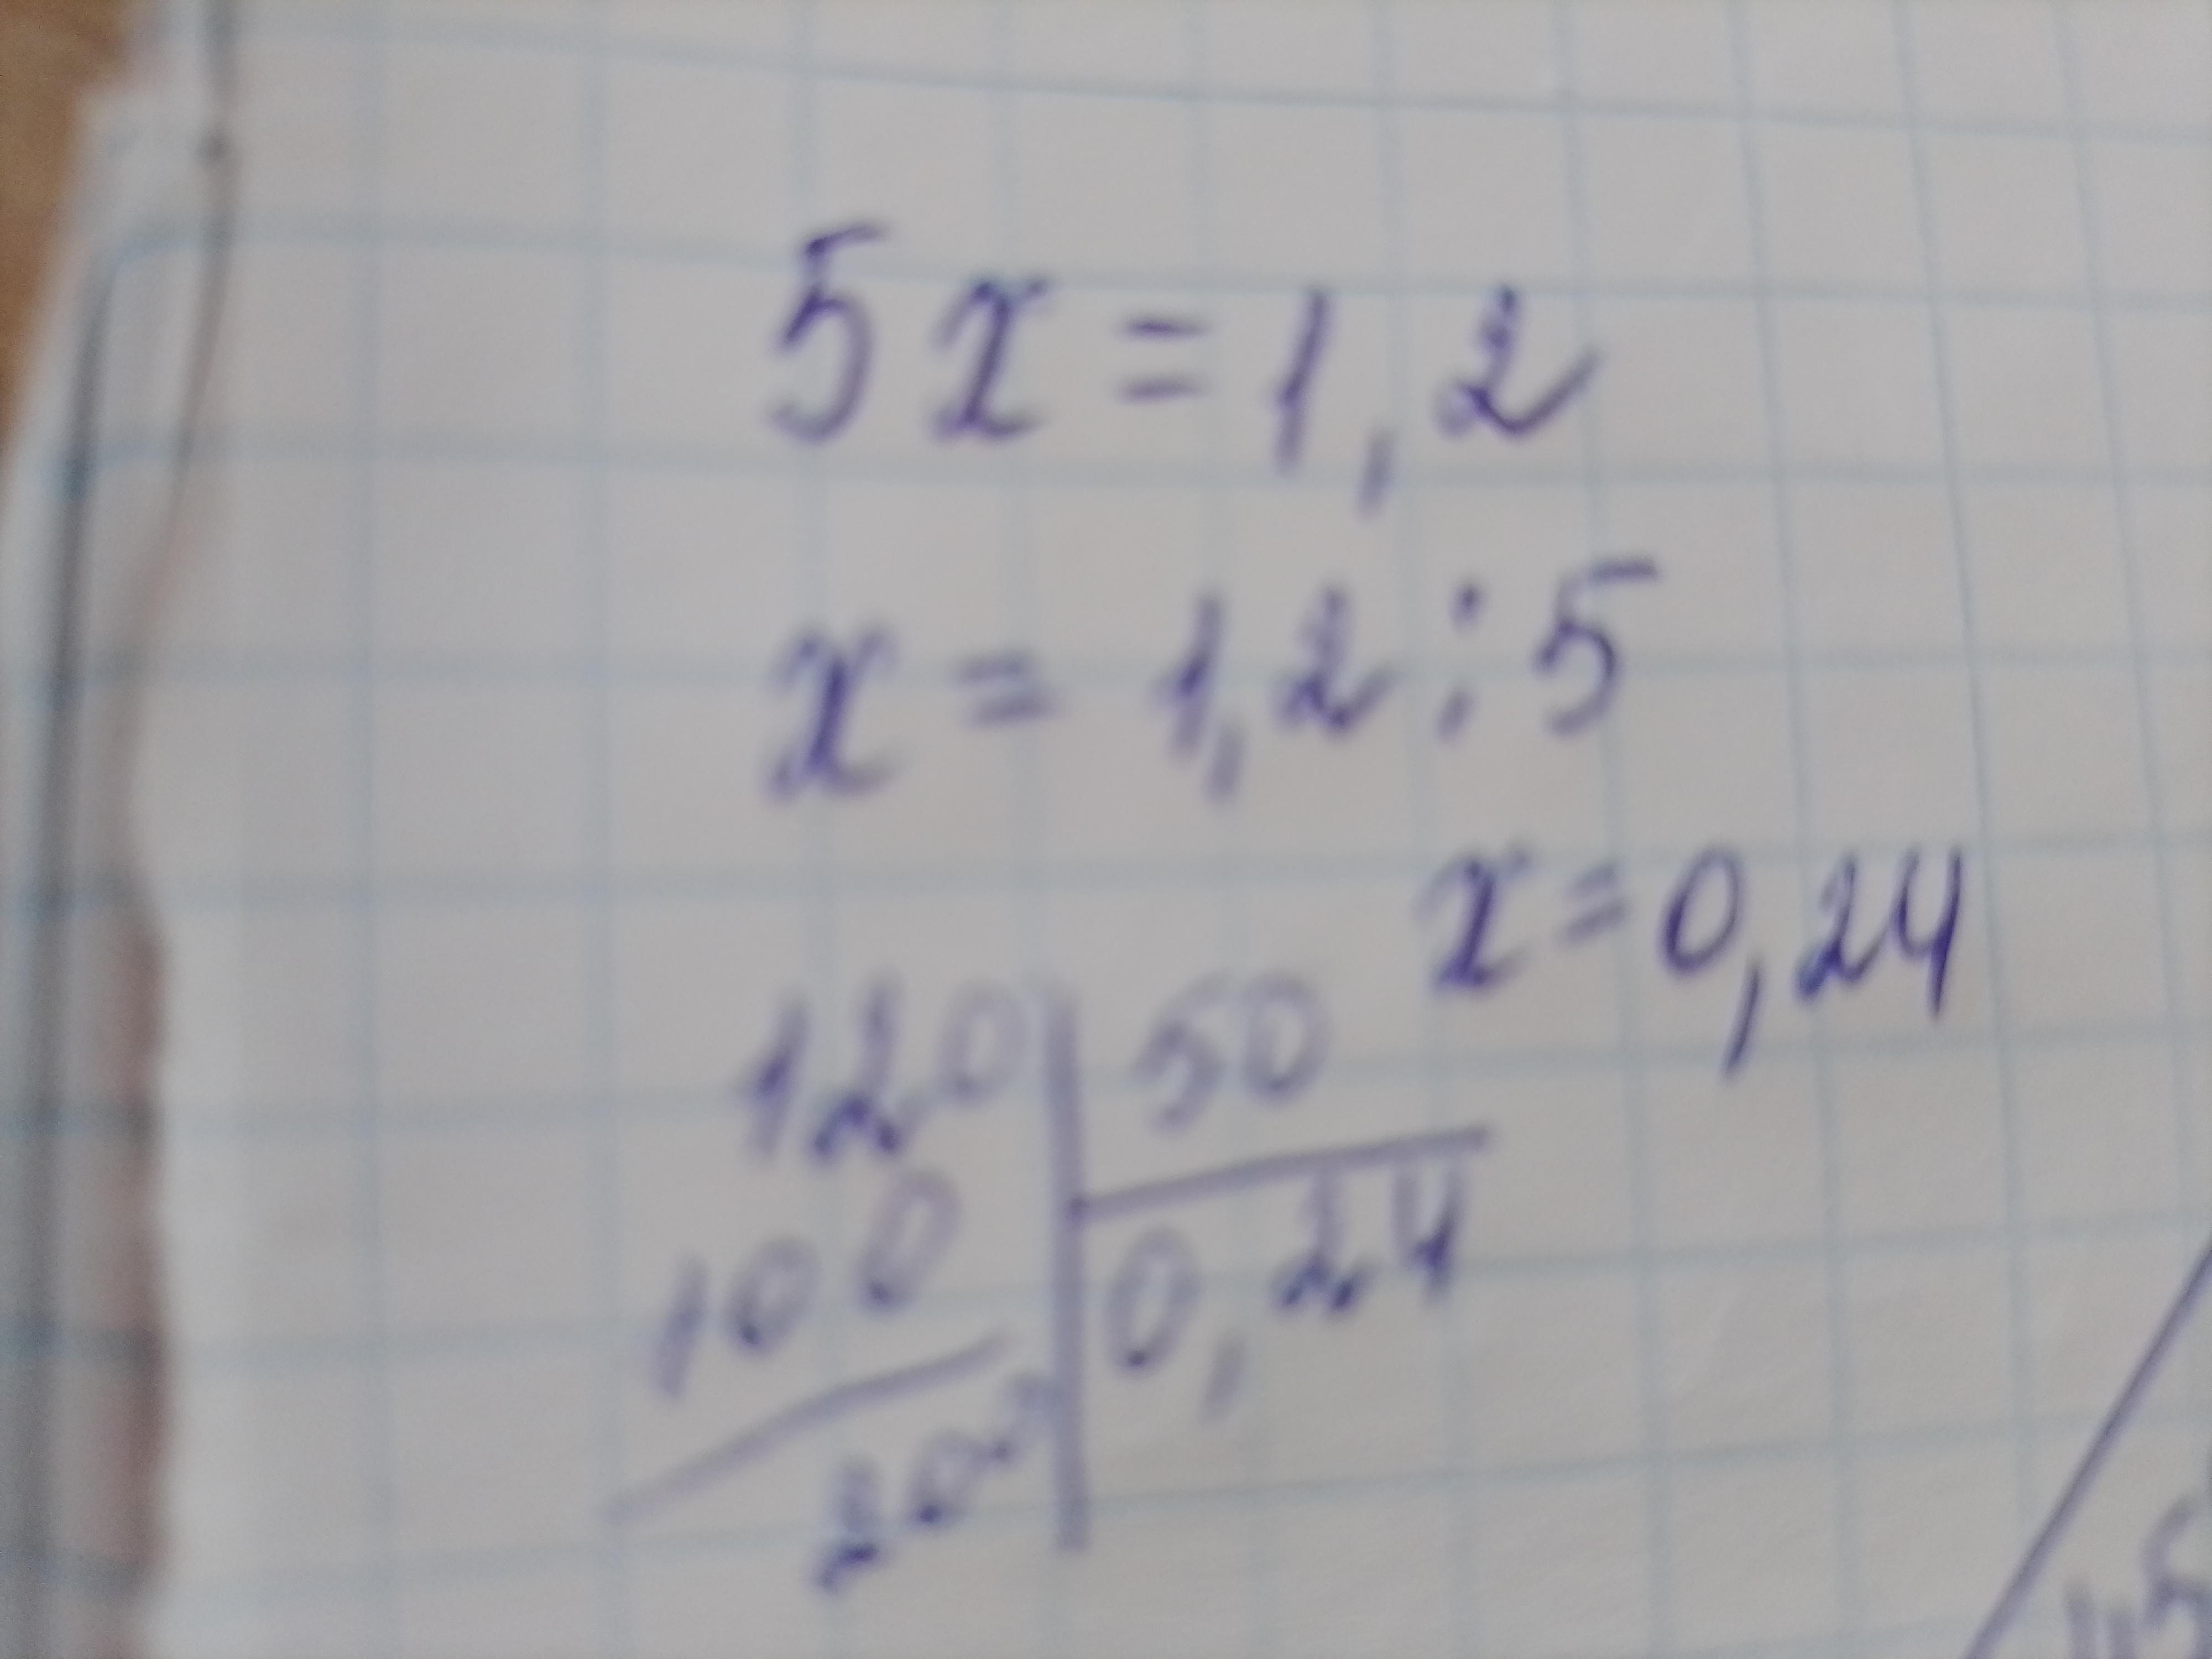 5x = 1,2
x = 1,2 : 5
x = 0,24
120 | 50
100 | 0,24
200